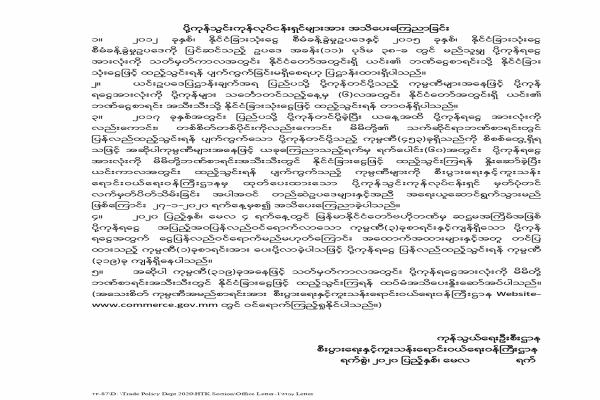 ပို့ကုန်သွင်းကုန်လုပ်ငန်းရှင်များအား အသိပေးကြေညာခြင်း
၁။ ၂၀၁၂ ခုနှစ်၊ နိုင်ငံခြားသုံးငွေ စီမံခန့်ခွဲမှုဥပဒေနှင့် ၂၀၁၅ ခုနှစ်၊ နိုင်ငံခြားသုံးငွေ
စီမံခန့်ခွဲမှုဥပဒေကို ပြင်ဆင်သည့် ဥပဒေ အခန်း(၁၁)၊ ပုဒ်မ ၃၈-ခ တွင် မည်သူမျှ ပို့ကုန်ရငွေ
အားလုံးကို သတ်မှတ်ကာလအတွင်း နိုင်ငံတော်အတွင်းရှိ ယင်း၏ ဘဏ်ငွေစာရင်းသို့ နိုင်ငံခြား
သုံးငွေဖြင့် ထည့်သွင်းရန် ပျက်ကွက်ခြင်းမရှိစေရဟု ပြဋ္ဌာန်းထားရှိပါသည်။
၂။ ယင်းဥပဒေပြဋ္ဌာန်းချက်အရ ပြည်ပသို့ ပို့ကုန်တင်ပို့သည့် ကုမ္ပဏီများအနေဖြင့် ပို့ကုန်
ရငွေအားလုံးကို ပို့ကုန်များ သင်္ဘောတင်သည့်နေ့မှ (၆)လအတွင်း နိုင်ငံတော်အတွင်းရှိ ယင်း၏
ဘဏ်ငွေစာရင်း အသီးသီးသို့ နိုင်ငံခြားသုံးငွေဖြင့် ထည့်သွင်းရန် တာဝန်ရှိပါသည်။
၃။ ၂၀၁၇ ခုနှစ်အတွင်း ပြည်ပသို့ ပို့ကုန်တင်ပို့ခဲ့ပြီး ယနေ့အထိ ပို့ကုန်ရငွေ အားလုံးကို
လည်းကောင်း၊ တစ်စိတ်တစ်ပိုင်းကိုလည်းကောင်း မိမိတို့၏ သက်ဆိုင်ရာဘဏ်စာရင်းတွင်
ပြန်လည်ထည့်သွင်းရန် ပျက်ကွက်သော ပို့ကုန်တင်ပို့သည့် ကုမ္ပဏီ(၄၅၃)ခုရှိသည်ကို စိစစ်တွေ့ရှိရ
သဖြင့် အဆိုပါကုမ္ပဏီများအနေဖြင့် ယခုကြေညာသည့်ရက်မှ ရက်ပေါင်း(၆၀)အတွင်း ပို့ကုန်ရငွေ
အားလုံးကို မိမိတို့ဘဏ်စာရင်းအသီးသီးတွင် နိုင်ငံခြားငွေဖြင့် ထည့်သွင်းကြရန် နှိုးဆော်ခဲ့ပြီး
ယင်းကာလအတွင်း ထည့်သွင်းရန် ပျက်ကွက်သည့် ကုမ္ပဏီများကို စီးပွားရေးနှင့်ကူးသန်း
ရောင်းဝယ်ရေးဝန်ကြီးဌာနမှ ထုတ်ပေးထားသော ပို့ကုန်သွင်းကုန်လုပ်ငန်းရှင် မှတ်ပုံတင်
လက်မှတ်ပိတ်သိမ်းခြင်း အပါအဝင် တည်ဆဲဥပဒေများနှင့်အညီ အရေးယူဆောင်ရွက်သွားမည်
ဖြစ်ကြောင်း ၂၇-၁-၂၀၂၀ ရက်နေ့မှစ၍ အသိပေးကြေညာခဲ့ပါသည်။
၄။ ၂၀၂၀ ပြည့်နှစ်၊ မေလ ၄ ရက်နေ့တွင် မြန်မာနိုင်ငံတော်ဗဟိုဘဏ်မှ ဆဋ္ဌမအကြိမ်အဖြစ်
ပို့ကုန်ရငွေ အပြည့်အဝပြန်လည်ဝင်ရောက်လာသော ကုမ္ပဏီ(၃)ခုစာရင်းနှင့်ကျန်ရှိသော ပို့ကုန်
ရငွေအတွက် ငွေပြန်လည်ဝင်ရောက်မည်မဟုတ်ကြောင်း အထောက်အထားများနှင့်အတူ တင်ပြ
ထားသည့် ကုမ္ပဏီ(၁)ခုစာရင်းအား ပေးပို့လာခဲ့ပါသဖြင့် ပို့ကုန်ရငွေ ပြန်လည်ထည့်သွင်းရန် ကုမ္ပဏီ
(၃၁၉)ခု ကျန်ရှိနေပါသည်။
၅။ အဆိုပါ ကုမ္ပဏီ(၃၁၉)ခုအနေဖြင့် သတ်မှတ်ကာလအတွင်း ပို့ကုန်ရငွေအားလုံးကို မိမိတို့
ဘဏ်စာရင်းအသီးသီးတွင် နိုင်ငံခြားငွေဖြင့် ထည့်သွင်းကြရန် ထပ်မံအသိပေးနှိုးဆော်အပ်ပါသည်။
(အသေးစိတ် ကုမ္ပဏီအမည်စာရင်းအား စီးပွားရေးနှင့်ကူးသန်းရောင်းဝယ်ရေးဝန်ကြီးဌာန Website-
www.commerce.gov.mm တွင် ဝင်ရောက်ကြည့်ရှုနိုင်ပါသည်။)
ကုန်သွယ်ရေးဦးစီးဌာန
စီးပွားရေးနှင့်ကူးသန်းရောင်းဝယ်ရေးဝန်ကြီးဌာန
ရက်စွဲ၊ ၂၀၂၀ ပြည့်နှစ်၊ မေလ ရက်
Trade Policy Dept 2020\HTK Section\Office Letter